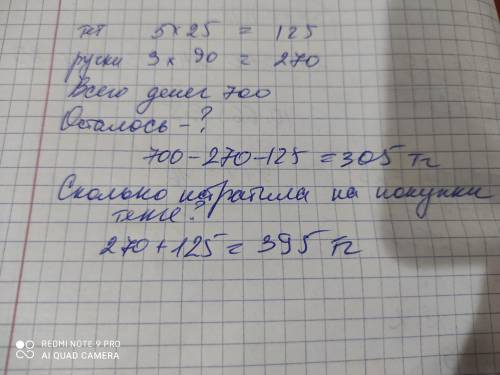 тет 5 х 25 = 125
ручки 3 х 90 = 270
Всего денег 700
Осталось - ?
700 - 270 - 125 = 305 Тг
Сколько потратила на покупки
тенге?
270 + 125 = 395 Тг
REDMI NOTE 9 PRO
AI QUAD CAMERA